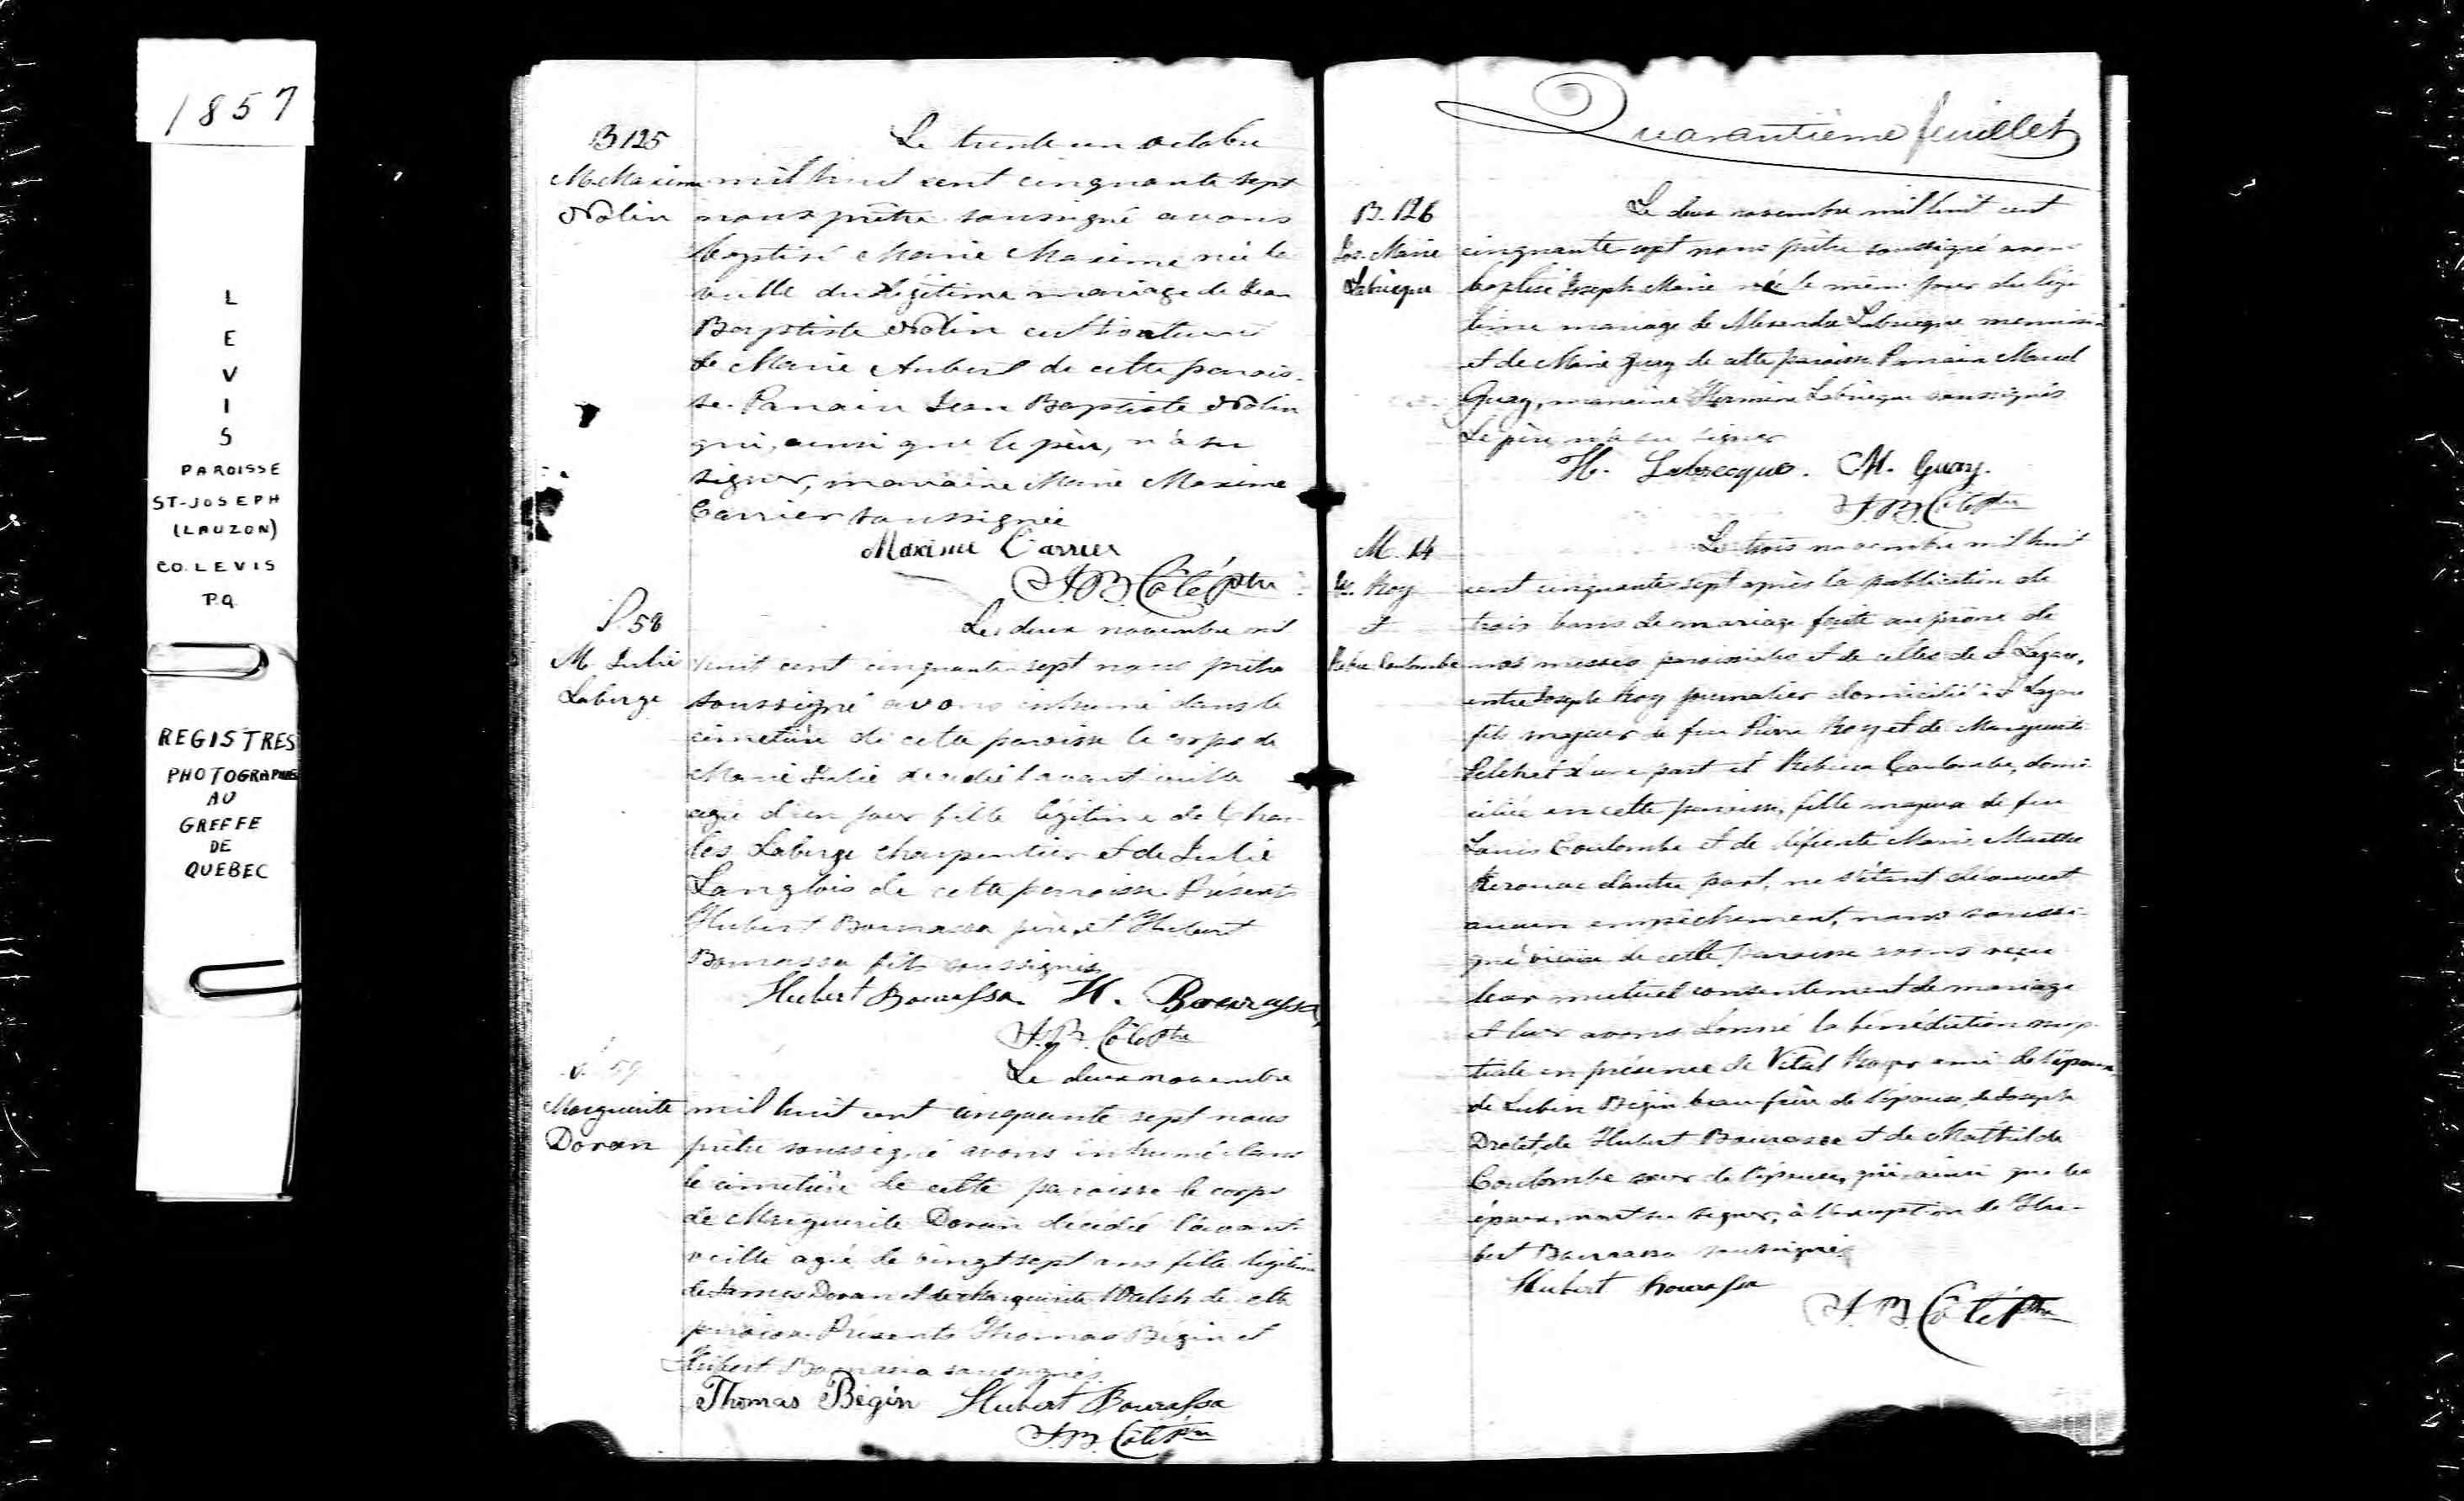 1857
L
E
V
I
S
PAROISSE
ST-JOSEPH
(LAUZON)
CO. LEVIS
P.Q.
REGISTRES
PHOTOGRAPHIÉS
AU
GREFFE
DE
QUEBEC
B 125
M. Maxime
Nolin
Le trente un octobre
mil huit cent cinquante sept
nous prêtre soussigné avons
baptisé Marie Maxime née la
veille du légitime mariage de Jean
Baptiste Nolin cultivateur et
de Marie Aubert de cette parois-
se. Parrain Jean Baptiste Nolin
qui, ainsi que le père, n'a su
signer, marraine Marie Maxime
Carrier soussignée
Maxime Carrier
J. B. Côté Ptre
S. 58
M. Julie
Laberge
Le deux novembre mil
huit cent cinquante sept nous prêtre
soussigné avons inhumé dans le
cimetière de cette paroisse le corps de
Marie Julie décédée l'avant veille
agée d'un jour fille légitime de Char-
les Laberge charpentier et de Julie
Langlois de cette paroisse. Présents
Hubert Bourassa père, et Hubert
Bourassa fils soussignés
Hubert Bourassa H. Bourassa
J. B. Côté Ptre
S. 59
Marguerite
Doran
Le deux novembre
mil huit cent cinquante sept nous
prêtre soussigné avons inhumé dans
le cimetière de cette paroisse le corps
de Marguerite Doran décédée l'avant
veille agée de vingt sept ans fille légitime
de James Doran et de Marguerite Walsh de cette
paroisse. Présents Thomas Bégin et
Hubert Bourassa soussignés.
Thomas Bégin Hubert Bourassa
J. B. Côté Ptre
Quarantième feuillet
B. 126
Jos. Marie
Labrecque
Le deux novembre mil huit cent
cinquante sept nous prêtre soussigné avons
baptisé Joseph Marie né le même jour du légi-
time mariage de Alexandre Labrecque menuisier
et de Marie Guay de cette paroisse. Parrain Marcel
Guay, marraine Hermine Labrecque soussignés
Le père n'a su signer
H. Labrecque. M. Guay.
J. B. Côté Ptre
M. 14
Jos. Roy
et
Rebecca Coulombe
Le trois novembre mil huit
cent cinquante sept après la publication de
trois bans de mariage faite au prône de
nos messes paroissiales et de celles de St Lazare,
entre Joseph Roy journalier domicilié à St Lazare
fils majeur de feu Pierre Roy et de Marguerite
d'une part et Rebecca Coulombe, domi-
ciliée en cette paroisse, fille majeure de feu
Louis Coulombe et de défunte Marie Marthe
Kerouac d'autre part, ne s'étant découvert
aucun empêchement, nous soussi-
gné vicaire de cette paroisse avons reçu
leur mutuel consentement de mariage
et leur avons donné la bénédiction nup-
tiale en présence de Vital ami de l'époux,
de Lubin Bégin beau-frère de l'épouse, de Joseph
Drolet, de Hubert Bourassa et de Mathilde
Coulombe soeur de l'épouse, qui, ainsi que les
époux, n'ont su signer, à l'exception de Hu-
bert Bourassa soussigné
Hubert Bourassa
J. B. Côté Ptre